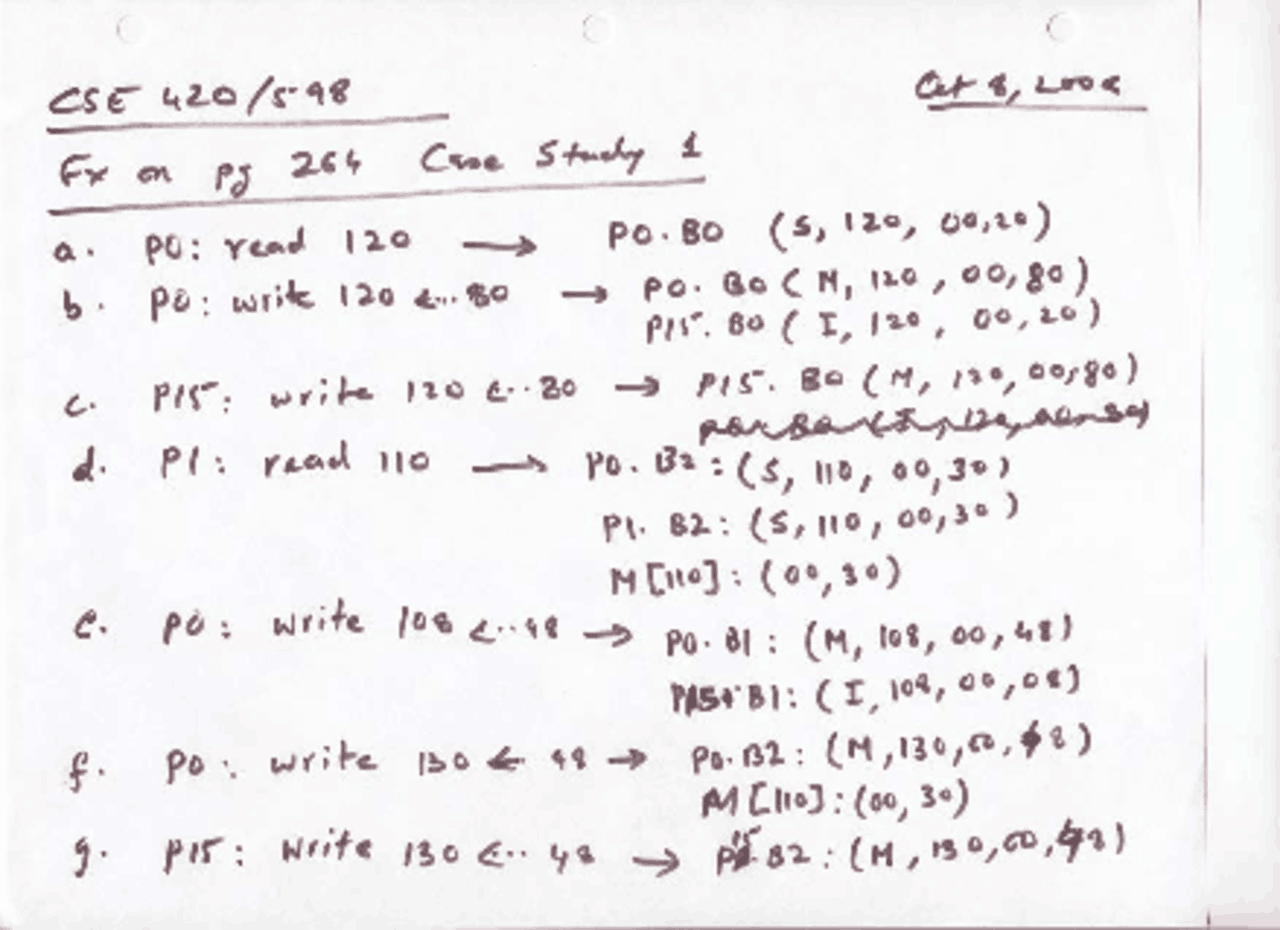 CSE 420/598 Oct 8, 2008
Ex on pg 264 Case Study 1
a. P0: read 120 → P0.B0 (S, 120, 00,20)
b. P0: write 120 <-- 80 → P0.B0 (M, 120, 00,80)
P15.B0 (I, 120, 00,20)
c. P15: write 120 <-- 80 → P15.B0 (M, 120, 00,80)
d. P1: read 110 → P0.B2: (S, 110, 00,30)
P1.B2: (S, 110, 00,30)
M[110]: (00,30)
e. P0: write 108 <-- 48 → P0.B1: (M, 108, 00,48)
P15.B1: (I, 108, 00,08)
f. P0: write 130 ← 48 → P0.B2: (M,130,00,48)
M[110]: (00,30)
g. P15: write 130 <-- 48 → P15.B2: (M,130,00,48)